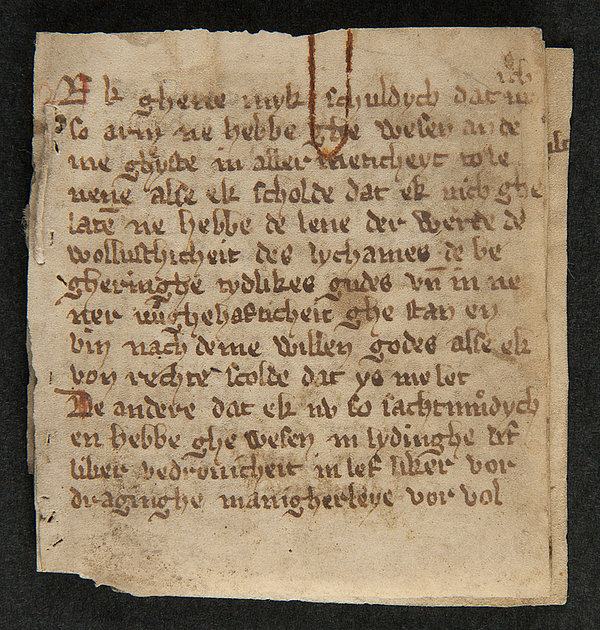 ich
Ek gheue myk schuldych dat nv
so arm ne hebbe ghe wesen an de
me gheyste in aller meticheyt to le
uene alse ek scholde dat ek nich ghe
laten ne hebbe de leue der werlde de
wollusthicheit des lychames de be
gheringhe tydlikes gudes vn̄ in ne
ner ghe stan en
bin nach deme willen godes alse ek
von rechte scolde dat ys me let
De andere dat ek nv so sachtmůdych
en hebbe ghe wesen in lydinghe
liker bedrouicheit in lef liker vor
draginghe manigherleye vor vol